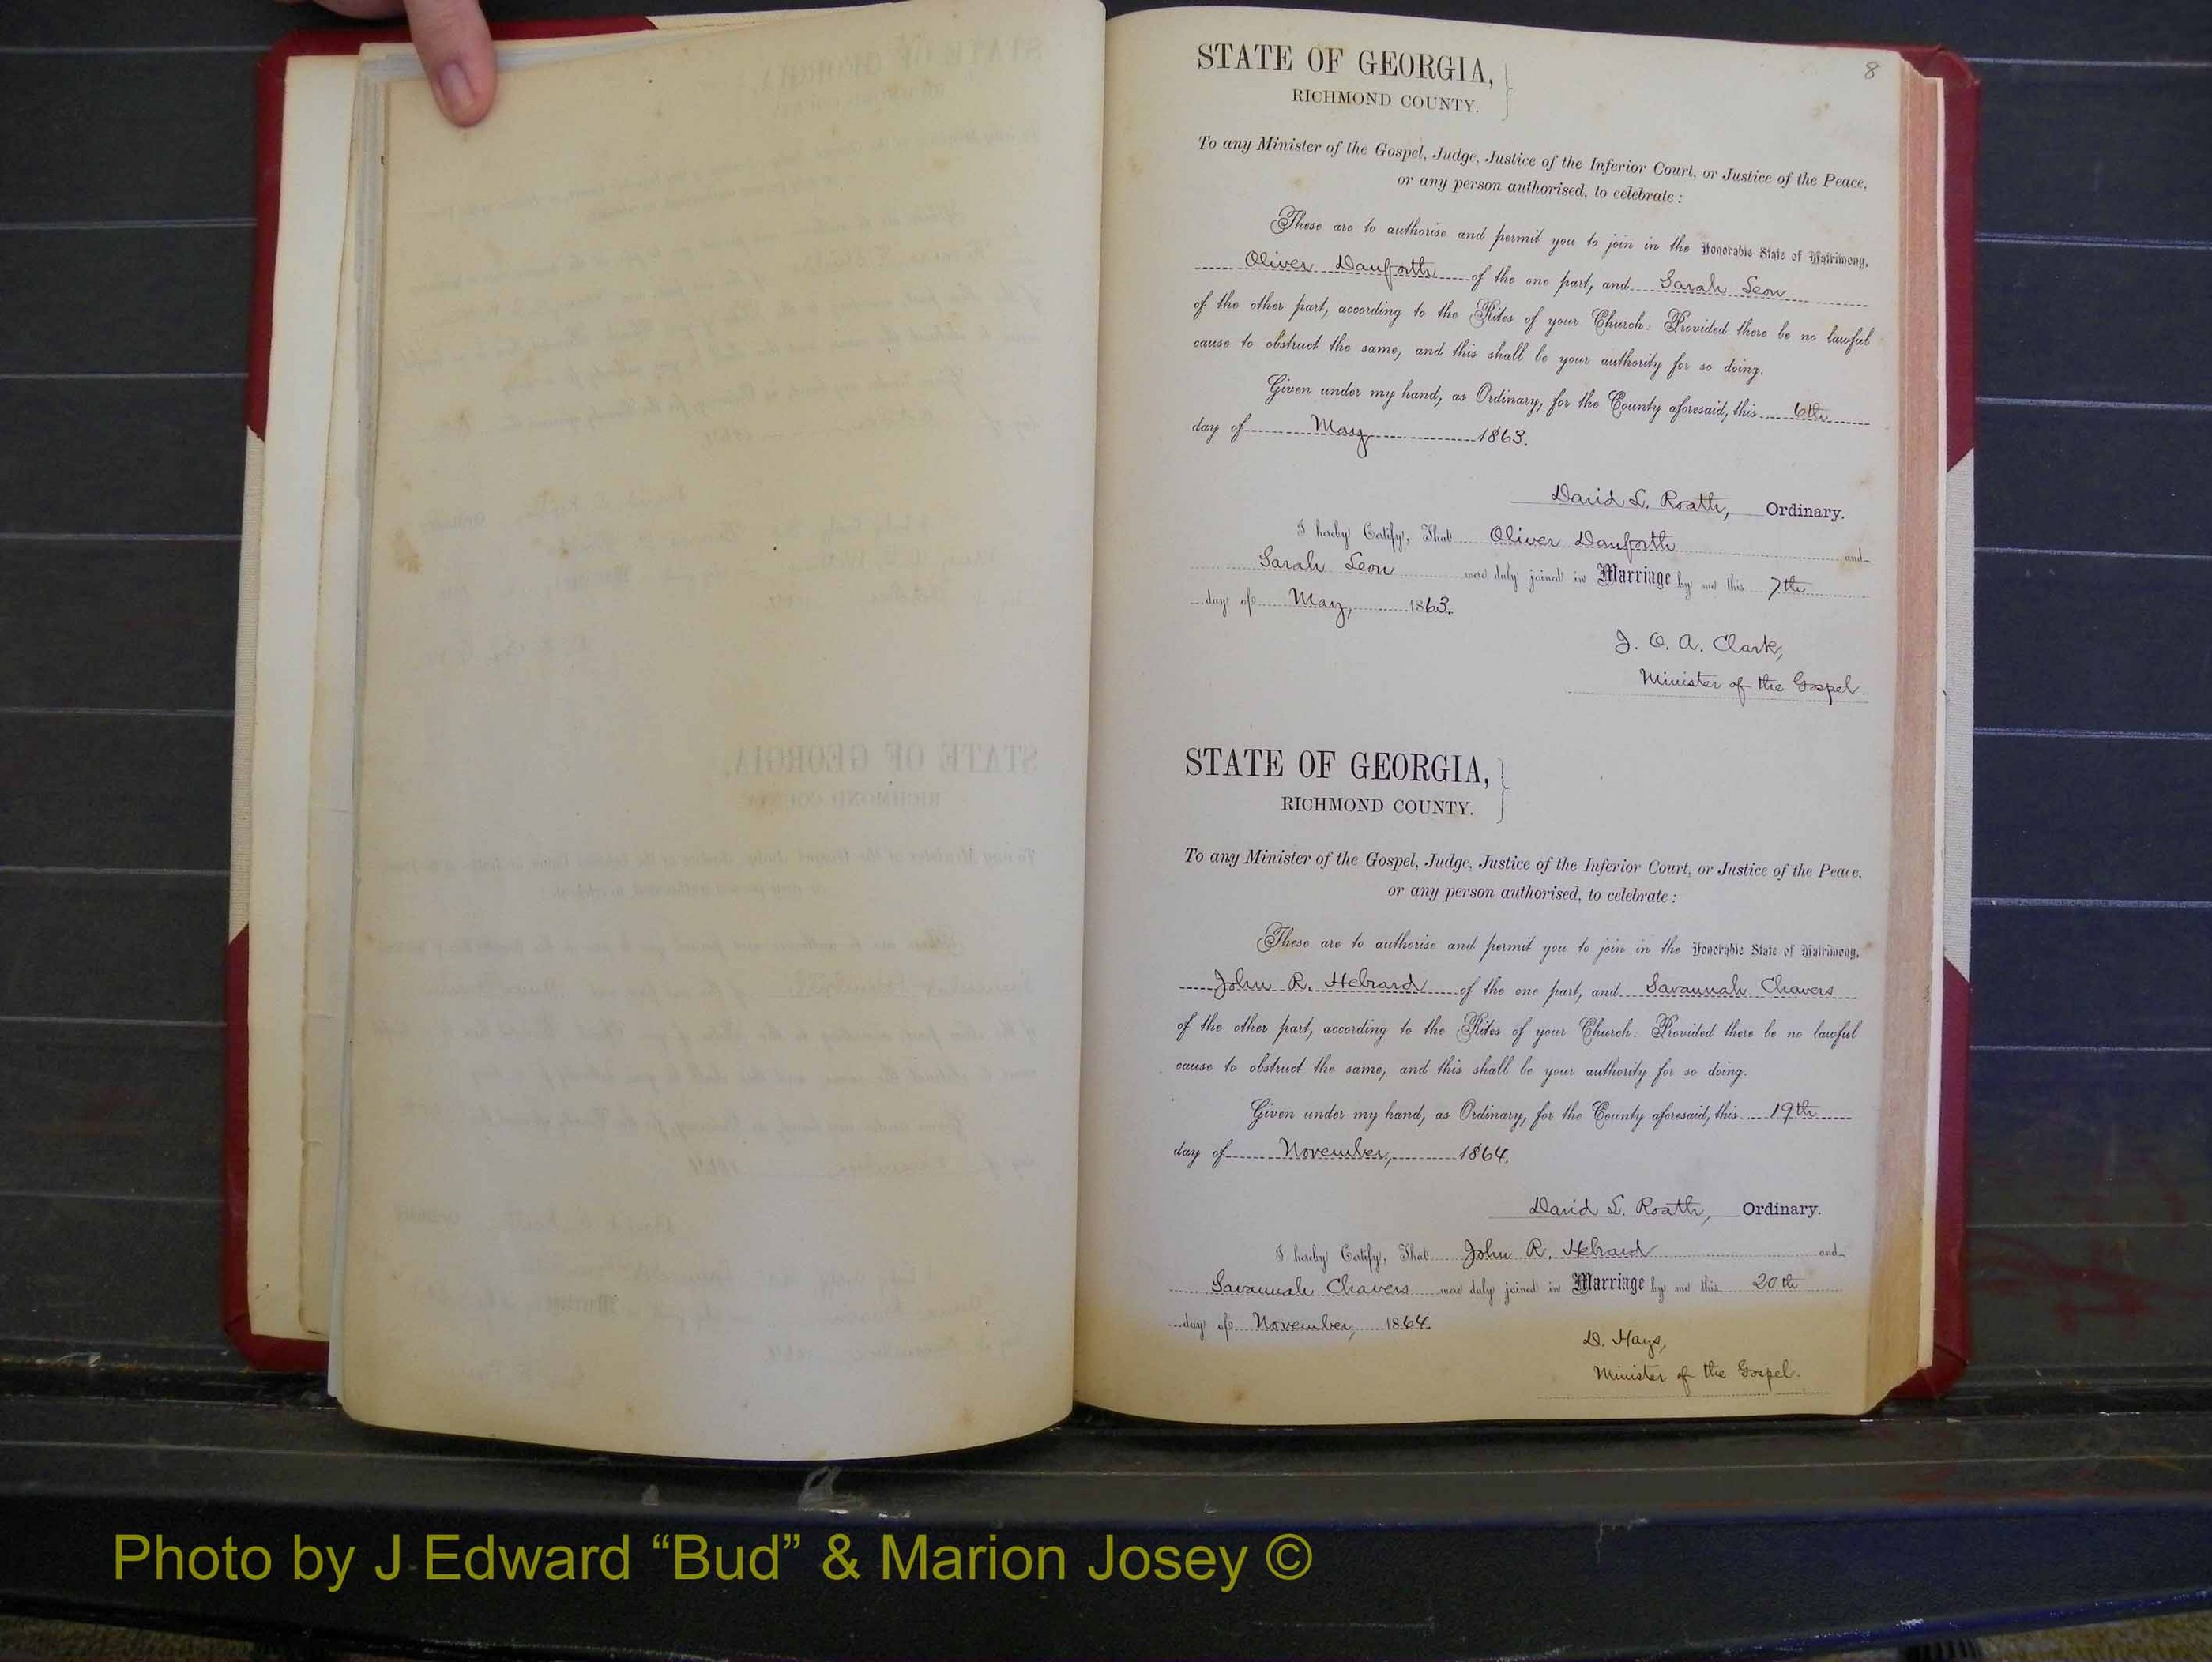 8
STATE OF GEORGIA,
RICHMOND COUNTY.
To any Minister of the Gospel, Judge, Justice of the Inferior Court, or Justice of the Peace,
or any person authorised, to celebrate :
These are to authorise and permit you to join in the Honorable State of Matrimony,
Oliver Danforth of the one part, and Sarah Leon
of the other part, according to the Rites of your Church: Provided there be no lawful
cause to obstruct the same, and this shall be your authority for so doing.
Given under my hand, as Ordinary, for the County aforesaid, this 6th
day of May 1863.
David L. Roath, Ordinary.
I hereby Certify, That Oliver Danforth and
Sarah Leon were duly joined in Marriage by me this 7th
day of May, 1863.
J. O. A. Clark,
Minister of the Gospel.
STATE OF GEORGIA,
RICHMOND COUNTY.
To any Minister of the Gospel, Judge, Justice of the Inferior Court, or Justice of the Peace,
or any person authorised, to celebrate :
These are to authorise and permit you to join in the Honorable State of Matrimony,
John R. Hebrard of the one part, and Savannah Chavers
of the other part, according to the Rites of your Church: Provided there be no lawful
cause to obstruct the same, and this shall be your authority for so doing.
Given under my hand, as Ordinary, for the County aforesaid, this 19th
day of November, 1864.
David L. Roath, Ordinary.
I hereby Certify, That John R. Hebrard and
Savannah Chavers were duly joined in Marriage by me this 20th
day of November, 1864.
D. Hays,
Minister of the Gospel.
Photo by J Edward “Bud” & Marion Josey ©